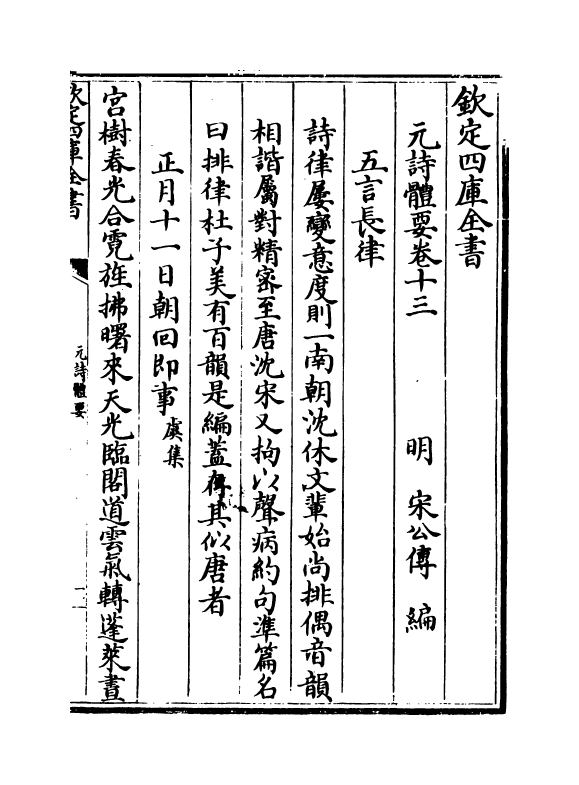 欽定四庫全書
元詩體要卷十三　　　明　宋公傳　編
五言長律
詩律屢變意度則一南朝沈休文輩始尚排偶音韻
相諧屬對精密至唐沈宋又拘以聲病約句準篇名
曰排律杜子美有百韻是編蓋存其似唐者
正月十一日朝回即事 虞集
宮樹春光合霓旌拂曙來天光臨閣道雲氣轉蓬萊晝
欽定四庫全書
元詩體要